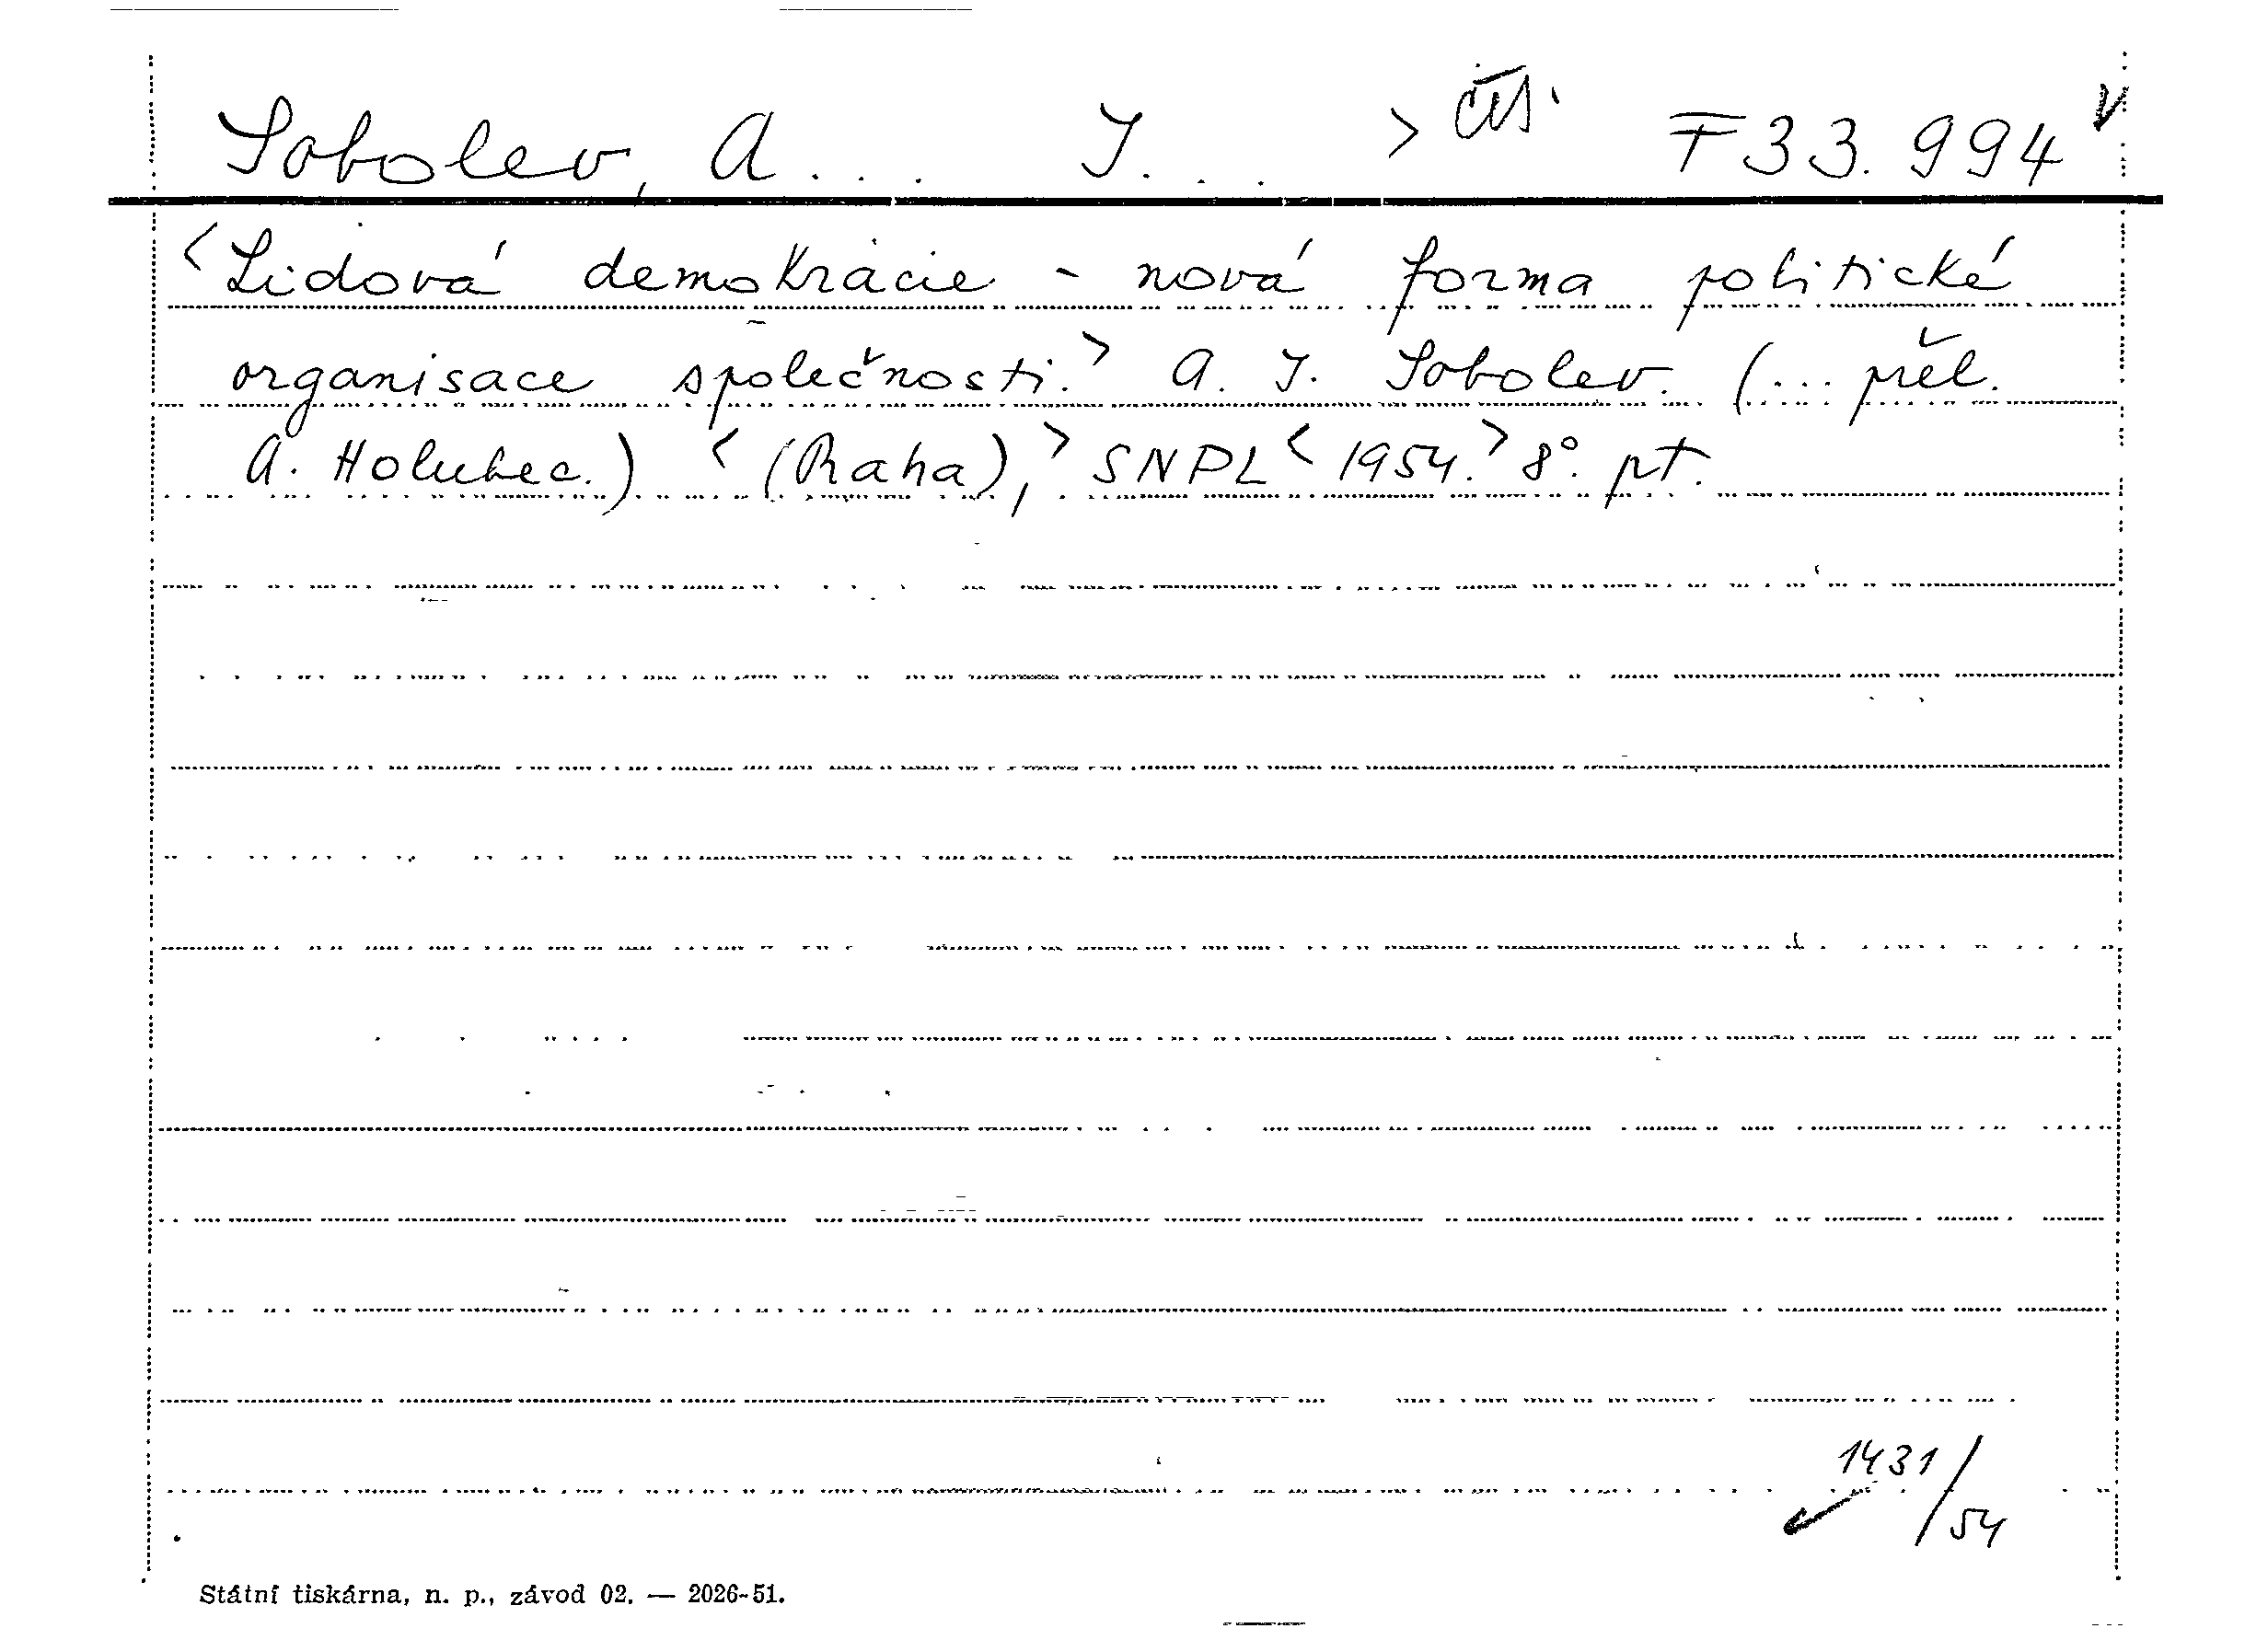 Sobolev, A... I... > čes. F 33.994
<Lidová demokracie - nová forma politické
organisace společnosti.> A. I. Sobolev. (... přel.
A. Holubec.) <(Praha),> SNPL <1954.> 8°. pt.
1431/54
Státní tiskárna, n. p., závod 02. — 2026-51.